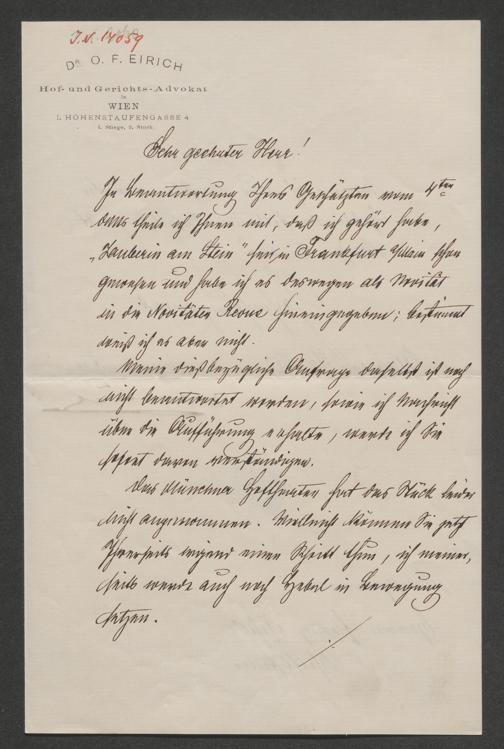 J.N. 17059
Dr. O. F. EIRICH
Hof- und Gerichts-Advokat
in
WIEN
I. HOHENSTAUFENGASSE 4
1. Stiege, 2. Stock.
Sehr geehrter Herr!
In Beantwortung Ihres Geschätzten vom 4ten
dies theile ich Ihnen mit, daß ich gehört habe,
„Zauberin am Stein" sei in Frankfurt schon
gewesen und habe ich es deswegen als Novität
in die Novitäten Revue hineingegeben; bestimmt
weiß ich es aber nicht.
Meine diesbezügliche Anfrage daselbst ist noch
nicht beantwortet worden, sowie ich Nachricht
über die Aufführung erhalte, werde ich Sie
sofort davon verständigen.
Das Münchner Hoftheater hat das Stück leider
nicht angenommen. Vielleicht können Sie jetzt
Ihrerseits irgend einen Schritt thun, ich meiner-
seits werde auch noch Hebel in Bewegung
setzen.